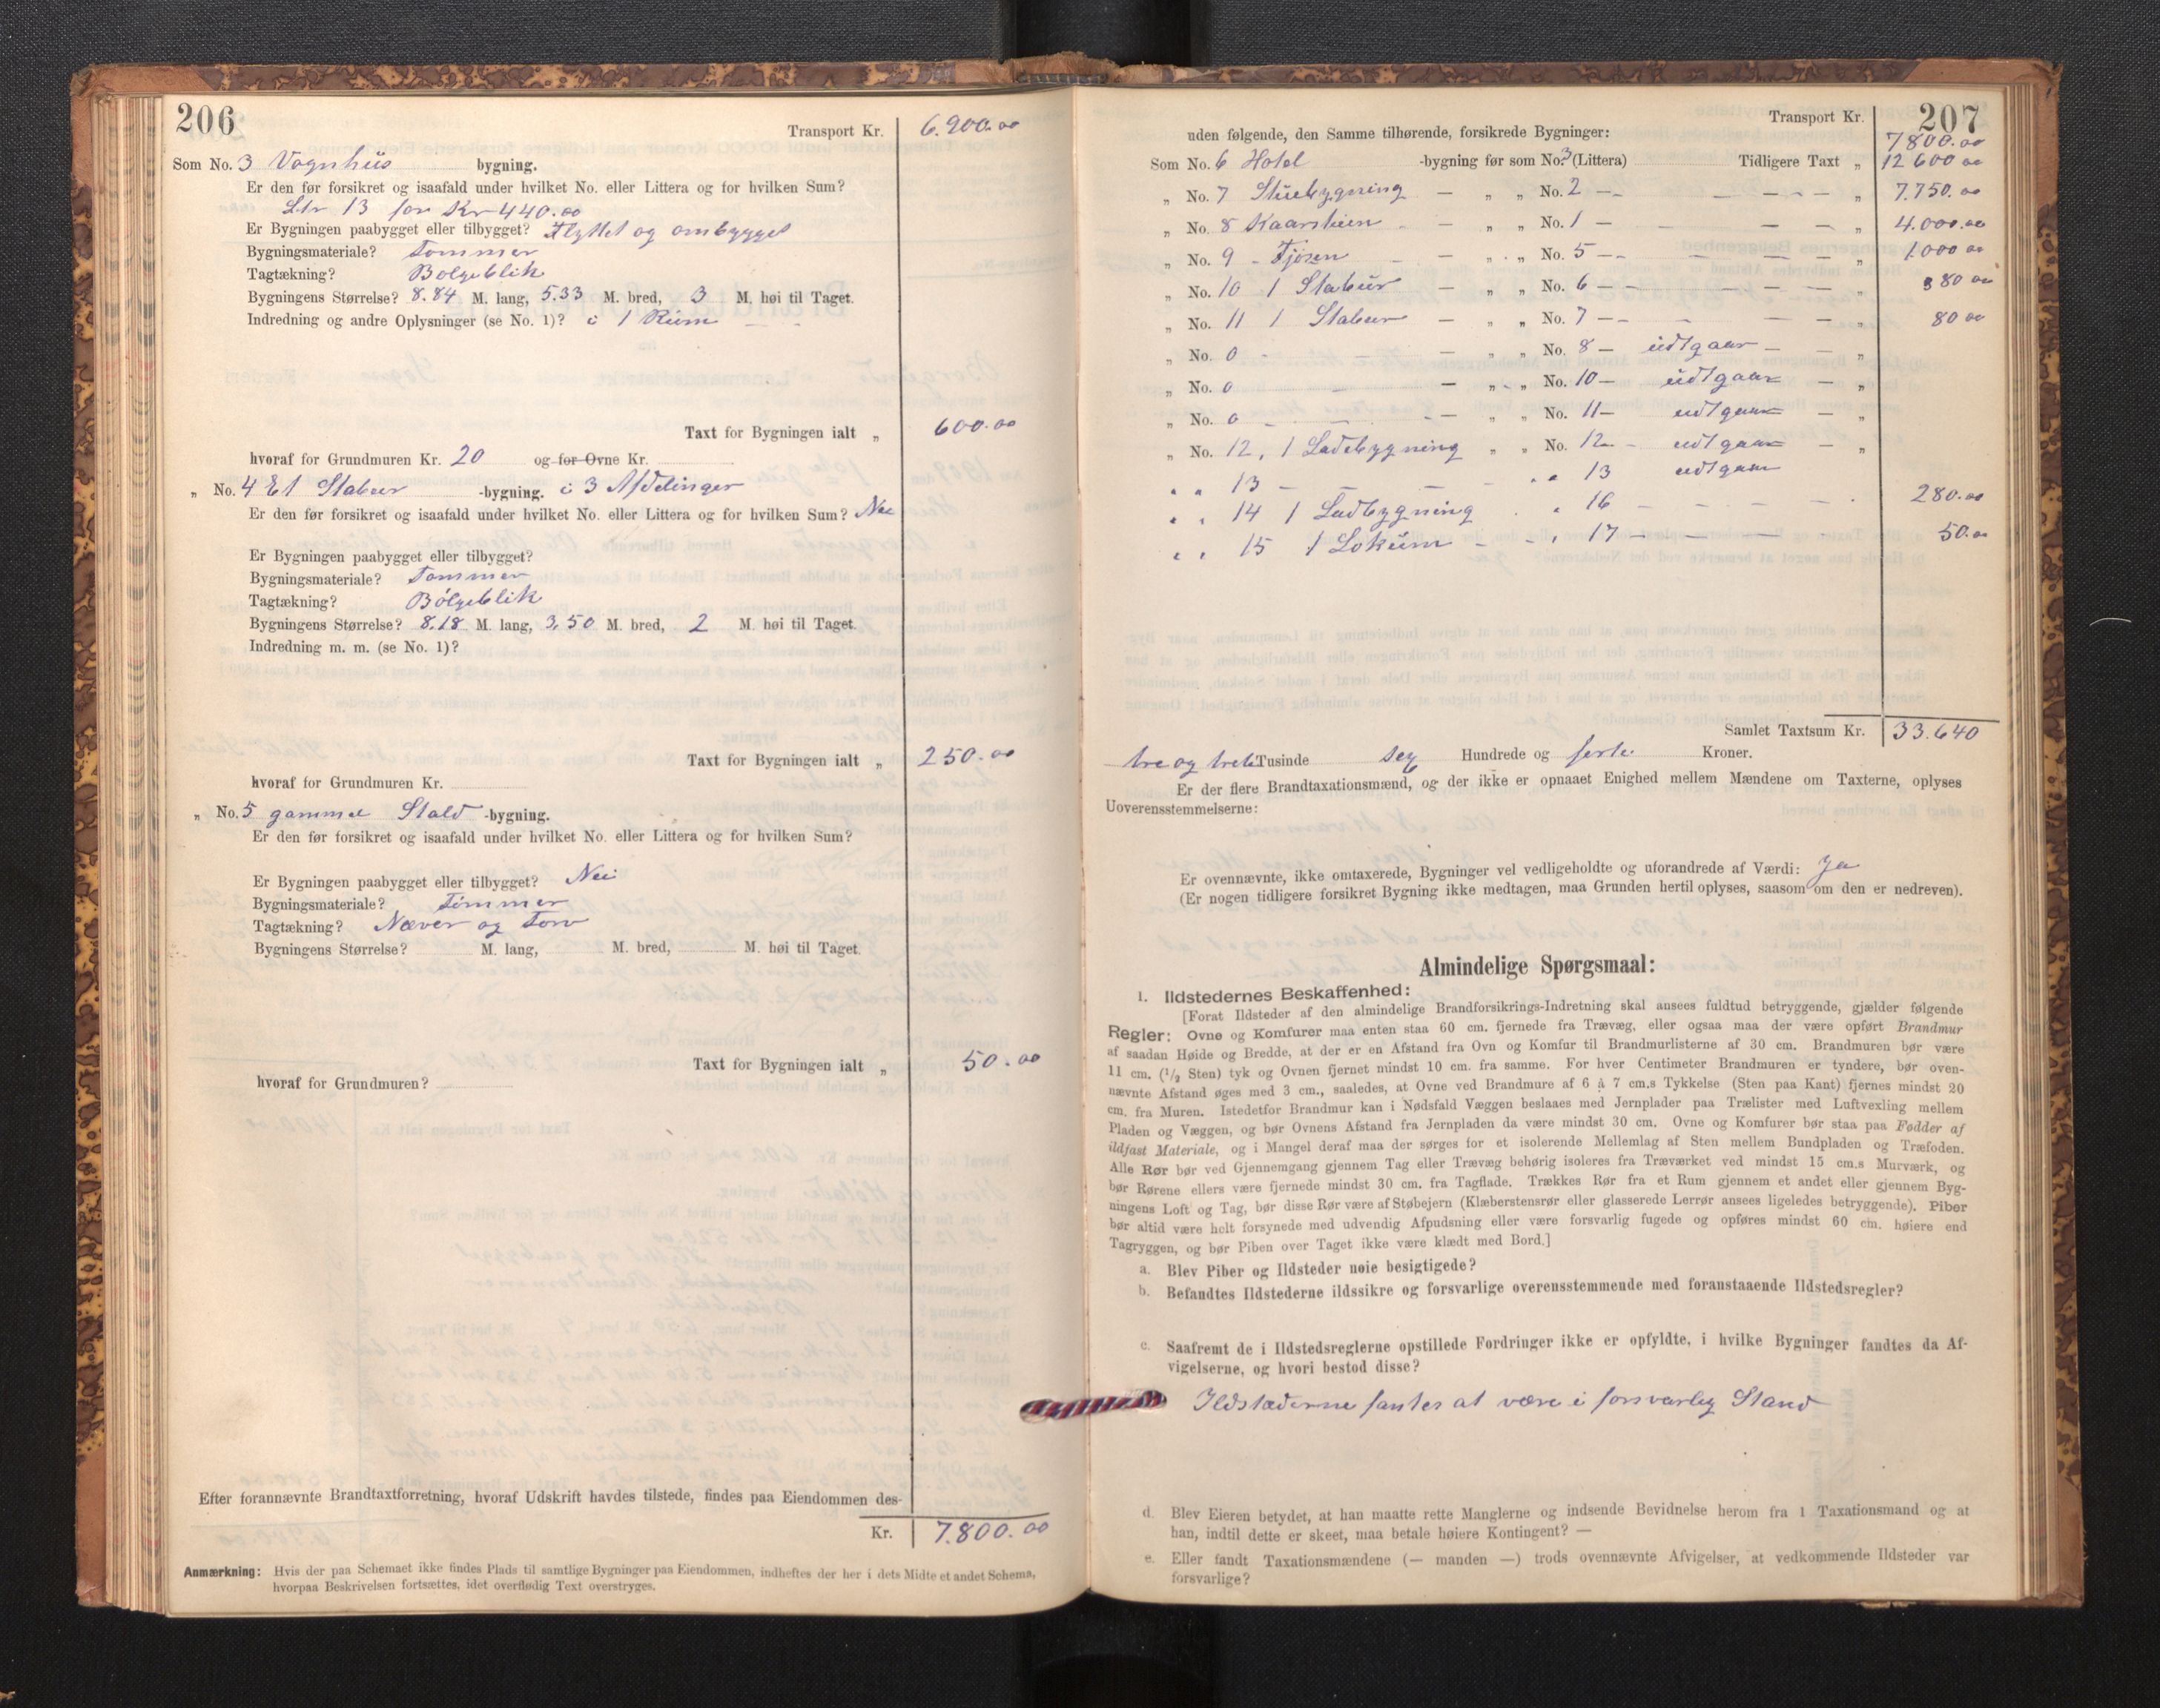 206
Transport Kr. 6.900.00
Som No. 3 Vognhus bygning.
Er den før forsikret og isaafald under hvilket No. eller Littera og for hvilken Sum?
Ltr 13 for Kr 440.00
Er Bygningen paabygget eller tilbygget? Flyttet og ombygget
Bygningsmateriale? Tømmer
Tagtækning? Bølgeblik
Bygningens Størrelse? 8.84 M. lang, 5.33 M. bred, 3 M. høi til Taget.
Indredning og andre Oplysninger (se No. 1)? i 1 Rum
Taxt for Bygningen ialt „ 600.00
hvoraf for Grundmuren Kr. 20 og for Ovne Kr.
„ No. 4 Et Stabur -bygning. i 3 Afdelinger
Er den før forsikret og isaafald under hvilket No. eller Littera og for hvilken Sum? Nei
Er Bygningen paabygget eller tilbygget?
Bygningsmateriale? Tømmer
Tagtækning? Bølgeblik
Bygningens Størrelse? 8.18 M. lang, 3,50 M. bred, 2 M. høi til Taget.
Indredning m. m. (se No. 1)?
Taxt for Bygningen ialt „ 250.00
hvoraf for Grundmuren Kr.
„ No. 5 gammel Stald -bygning.
Er den før forsikret og isaafald under hvilket No. eller Littera og for hvilken Sum?
Er Bygningen paabygget eller tilbygget? Nei
Bygningsmateriale? Tømmer
Tagtækning? Næver og Torv
Bygningens Størrelse? M. lang, M. bred, M. høi til Taget.
Taxt for Bygningen ialt „ 50.00
hvoraf for Grundmuren?
Efter forannævnte Brandtaxtforretning, hvoraf Udskrift havdes tilstede, findes paa Eiendommen des-
Kr. 7.800.00
Anmærkning: Hvis der paa Schemaet ikke findes Plads til samtlige Bygninger paa Eiendommen, indheftes der her i dets Midte et andet Schema,
hvorpaa Beskrivelsen fortsættes, idet overflødig Text overstryges.
207
Transport Kr. 7800.00
uden følgende, den Samme tilhørende, forsikrede Bygninger:
Som No. 6 Hotel -bygning før som No. 3 (Littera) Tidligere Taxt „ 12600 00
„ No. 7 Stuebygning — „ „ No. 2 — — — — „ 7.750.00
„ No. 8 Kaarstuen — „ „ No. 1 — — — — „ 4.000.00
„ No. 9 - Fjøsen — „ „ No. 5 — — — — „ 1000 00
„ No. 10 1 Stabur — „ „ No. 6 — — — — „ 80 00
„ No. 11 1 Stabur — „ „ No. 7 — — — — „ 80 00
„ No. 0 - — „ „ No. 8 — udtgaar — — „
„ No. 0 — — „ „ No. 10 — udtgaar — „
„ No. 0 - — „ „ No. 11 — udtgaar — „
„ No. 12, 1 Ladebygning „ „ No. 12 — udtgaar — „
„ „ 13 — — — - „ „ 13 udtgaar
„ „ 14 1 Ladbygning „ „ 16 - - - 280.00
„ „ 15 1 Lokum - - „ 17 — — — 50.00
Samlet Taxtsum Kr. 33.640
tre og treti Tusinde sex Hundrede og førti Kroner.
Er der flere Brandtaxationsmænd, og der ikke er opnaaet Enighed mellem Mændene om Taxterne, oplyses
Uoverensstemmelserne:
Er ovennævnte, ikke omtaxerede, Bygninger vel vedligeholdte og uforandrede af Værdi: Ja
(Er nogen tidligere forsikret Bygning ikke medtagen, maa Grunden hertil oplyses, saasom om den er nedreven).
Almindelige Spørgsmaal:
1. Ildstedernes Beskaffenhed:
[Forat Ildsteder af den almindelige Brandforsikrings-Indretning skal ansees fuldtud betryggende, gjælder følgende
Regler: Ovne og Komfurer maa enten staa 60 cm. fjernede fra Trævæg, eller ogsaa maa der være opført Brandmur
af saadan Høide og Bredde, at der er en Afstand fra Ovn og Komfur til Brandmurlisterne af 30 cm. Brandmuren bør være
11 cm. (½ Sten) tyk og Ovnen fjernet mindst 10 cm. fra samme. For hver Centimeter Brandmuren er tyndere, bør oven-
nævnte Afstand øges med 3 cm., saaledes, at Ovne ved Brandmure af 6 à 7 cm.s Tykkelse (Sten paa Kant) fjernes mindst 20
cm. fra Muren. Istedetfor Brandmur kan i Nødsfald Væggen beslaaes med Jernplader paa Trælister med Luftvexling mellem
Pladen og Væggen, og bør Ovnens Afstand fra Jernpladen da være mindst 30 cm. Ovne og Komfurer bør staa paa Fødder af
ildfast Materiale, og i Mangel deraf maa der sørges for et isolerende Mellemlag af Sten mellem Bundpladen og Træfoden.
Alle Rør bør ved Gjennemgang gjennem Tag eller Trævæg behørig isoleres fra Træværket ved mindst 15 cm.s Murværk, og
bør Rørene ellers være fjernede mindst 30 cm. fra Tagflade. Trækkes Rør fra et Rum gjennem et andet eller gjennem Byg-
ningens Loft og Tag, bør disse Rør være af Støbejern (Klæberstensrør eller glasserede Lerrør ansees ligeledes betryggende). Piber
bør altid være helt forsynede med udvendig Afpudsning eller være forsvarlig fugede og opføres mindst 60 cm. høiere end
Tagryggen, og bør Piben over Taget ikke være klædt med Bord.]
a. Blev Piber og Ildsteder nøie besigtigede?
b. Befandtes Ildstederne ildssikre og forsvarlige overensstemmende med foranstaaende Ildstedsregler?
c. Saafremt de i Ildstedsreglerne opstillede Fordringer ikke er opfyldte, i hvilke Bygninger fandtes da Af-
vigelserne, og hvori bestod disse?
Ildstæderne fantes at være i forsvarlig Stand
d. Blev Eieren betydet, at han maatte rette Manglerne og indsende Bevidnelse herom fra 1 Taxationsmand og at
han, indtil dette er skeet, maa betale høiere Kontingent? —
e. Eller fandt Taxationsmændene (— manden —) trods ovennævnte Afvigelser, at vedkommende Ildsteder var
forsvarlige?